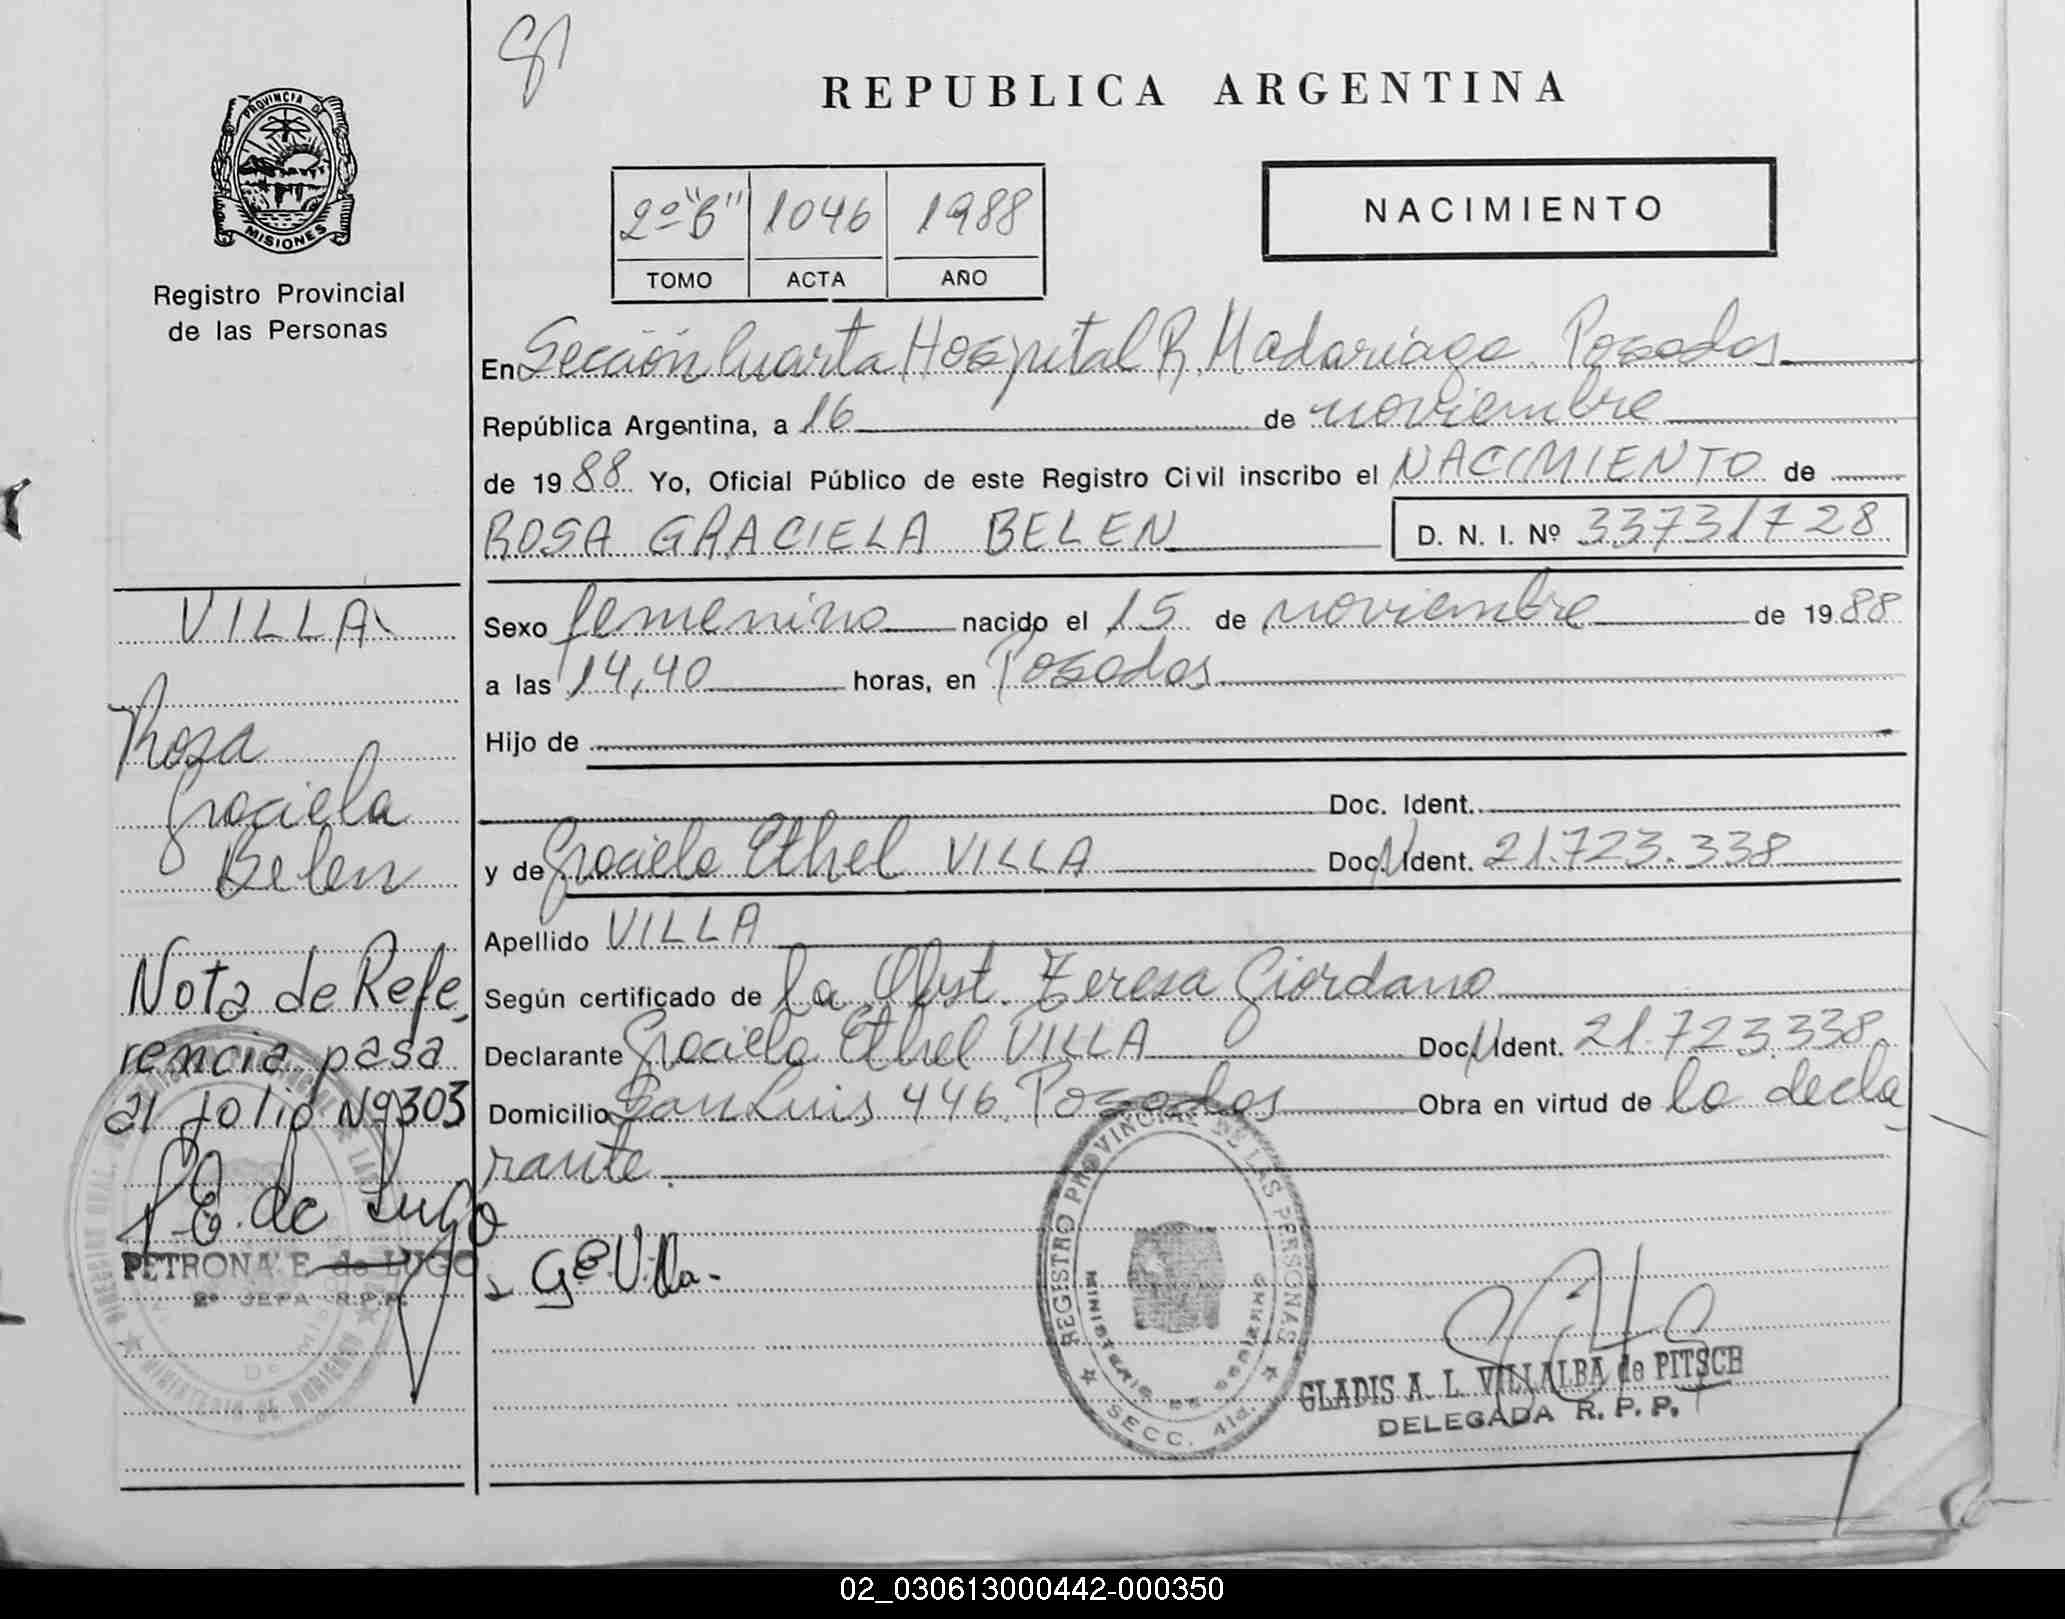 REPUBLICA ARGENTINA
PROVINCIA DE
MISIONES
Registro Provincial
de las Personas
2º "B" 1046 1988
TOMO ACTA AÑO
NACIMIENTO
En Sección Cuarta Hospital R. Madariaga. Posadas
República Argentina, a 16 de noviembre
de 1988 Yo, Oficial Público de este Registro Civil inscribo el NACIMIENTO de
ROSA GRACIELA BELEN D. N. I. Nº 33731728
Sexo femenino nacido el 15 de noviembre de 1988
a las 14,40 horas, en Posadas
Hijo de
Doc. Ident.
y de Graciela Ethel VILLA Doc. N. Ident. 21.723.338
Apellido VILLA
Según certificado de la Obst. Teresa Giordano
Declarante Graciela Ethel VILLA Doc. N. Ident. 21.723.338
Domicilio San Luis 446 Posadas Obra en virtud de la decla
rante.
VILLA
Rosa
Graciela
Belen
Nota de Refe
rencia pasa
al folio Nº303
P.E. de Lugo
PETRONA E. de LUGO
2º JEFA R.P.P.
MINISTERIO DE GOBIERNO
G E Villa.-
REGISTRO PROVINCIAL DE LAS PERSONAS
MINISTERIO DE GOBIERNO
SECC. 4ta.
GLADIS A. L. VILLALBA de PITSCH
DELEGADA R. P. P.
02_030613000442-000350